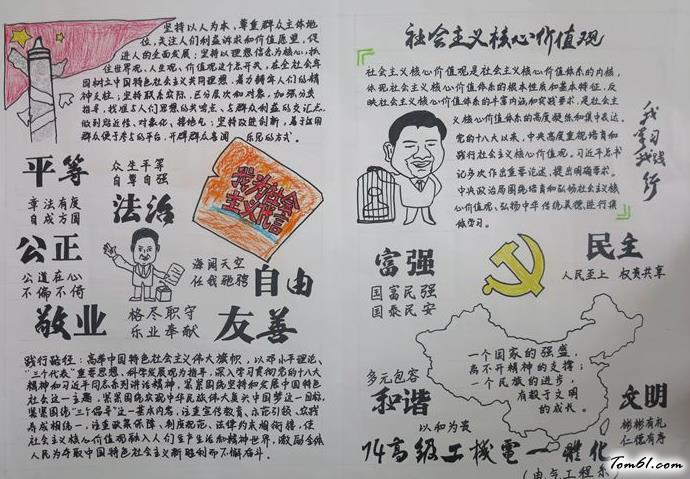 坚持以人为本,尊重群众主体地
位,关注人们利益诉求和价值愿望,促
进人的全面发展;坚持以理想信念为核心,抓
住世界观、人生观、价值观这个总开关,在全社会牢
固树立中国特色社会主义共同理想,着力铸牢人们的精
神支柱;坚持联系实际,区分层次和对象,加强分类
指导,找准与人们思想的共鸣点、与群众利益的交汇点,
做到贴近性、对象化、接地气;坚持改进创新,善于运用
群众便于参与的平台,开辟群众喜闻乐见的方式。
平等
众生平等
自尊自强
章法有度
自成方圆
法治
我为社会
主义代言
公正
公道在心
不偏不倚
海阔天空
任我驰骋
自由
敬业
恪尽职守
乐业奉献
友善
践行路径:高举中国特色社会主义伟大旗帜,以邓小平理论、
“三个代表”重要思想、科学发展观为指导,深入学习贯彻党的十八大
精神和习近平同志系列讲话精神,紧紧围绕坚持和发展中国特色
社会主义这一主题,紧紧围绕实现中华民族伟大复兴中国梦这一目标,
紧紧围绕“三个倡导”这一基本内容,注重宣传教育、示范引领、实践
养成相统一,注重政策保障、制度规范、法律约束相衔接,使
社会主义核心价值观融入人们生产生活和精神世界,激励全体
人民为夺取中国特色社会主义新胜利而不懈奋斗。
社会主义核心价值观
社会主义核心价值观是社会主义核心价值体系的内核,
体现社会主义核心价值体系的根本性质和基本特征,反
映社会主义核心价值体系的丰富内涵和实践要求,是社会主
义核心价值体系的高度凝练和集中表达。
党的十八大以来,中央高度重视培育和
践行社会主义核心价值观。习近平总书
记多次作出重要论述、提出明确要求。
中央政治局围绕培育和弘扬社会主义核
心价值观、弘扬中华传统美德进行集
体学习。
我学习
我践行
富强
国富民强
国泰民安
民主
人民至上 权责共享
一个国家的强盛,
离不开精神的支撑;
一个民族的进步,
有赖于文明
的成长。
多元包容
和谐
以和为贵
文明
彬彬有礼
仁德有序
14高级工機電一體化
(电气工程系)
Tom61.com